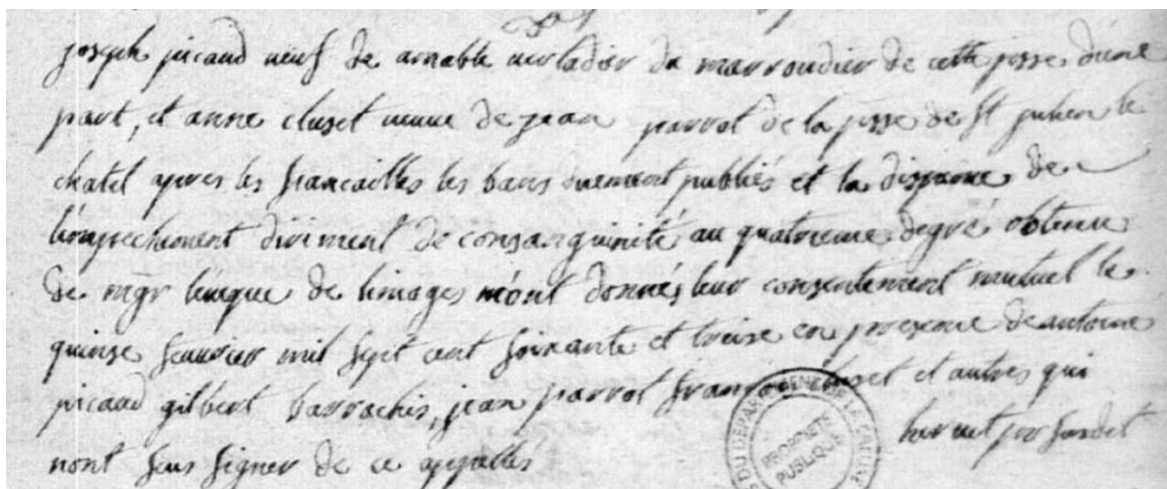 joseph picaud veuf de amable verladier de marroudier de cette psse dune
part, et anne cluset veuve de jean parrot de la psse de St julien le
chatel apres les fiancailles les bans duement publiés et la dispense de
lempechement diriment de consanguinité au quatrieme degré obtenue
de mgr leveque de limoges mont donnés leur consentement mutuel le
quinse feuvrier mil sept cent soixante et treise en presence de antoine
picaud gilbert barrachis, jean parrot françois cluset et autres qui
nont sceus signer de ce appellés
PROPRIETE PUBLIQUE